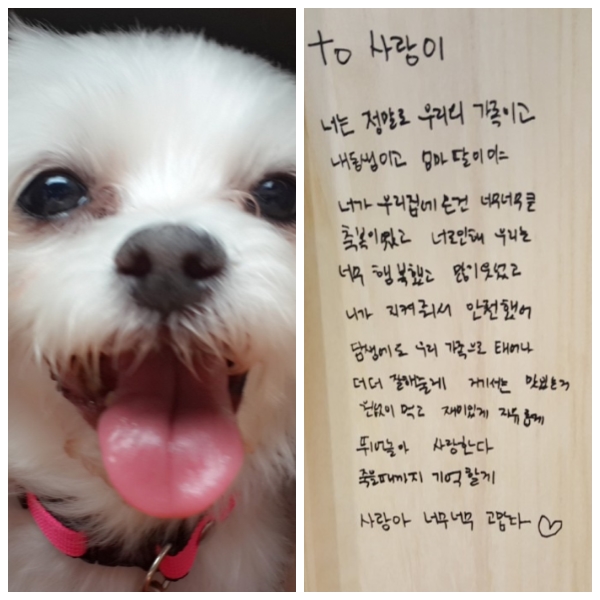 to 사랑이
너는 정말로 우리의 가족이고
내동생이고 엄마 딸이여
너가 우리집에 온건 너무너무 큰
축복이였고 너로인해 우리는
너무 행복했고 많이웃었고
니가 지켜줘서 안전했어
담생에도 우리 가족으로 태어나
더더 잘해줄게 거기서는 맛있는거
원없이 먹고 재미있게 자유롭게
뛰어놀아 사랑한다
죽을때까지 기억할게
사랑아 너무너무 고맙다 ♡